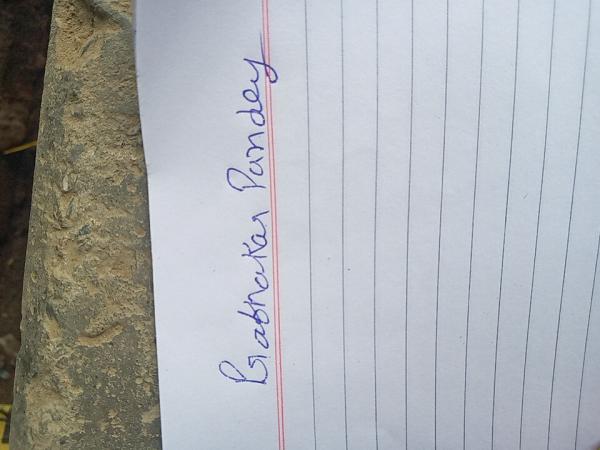 Prabhakar Pandey